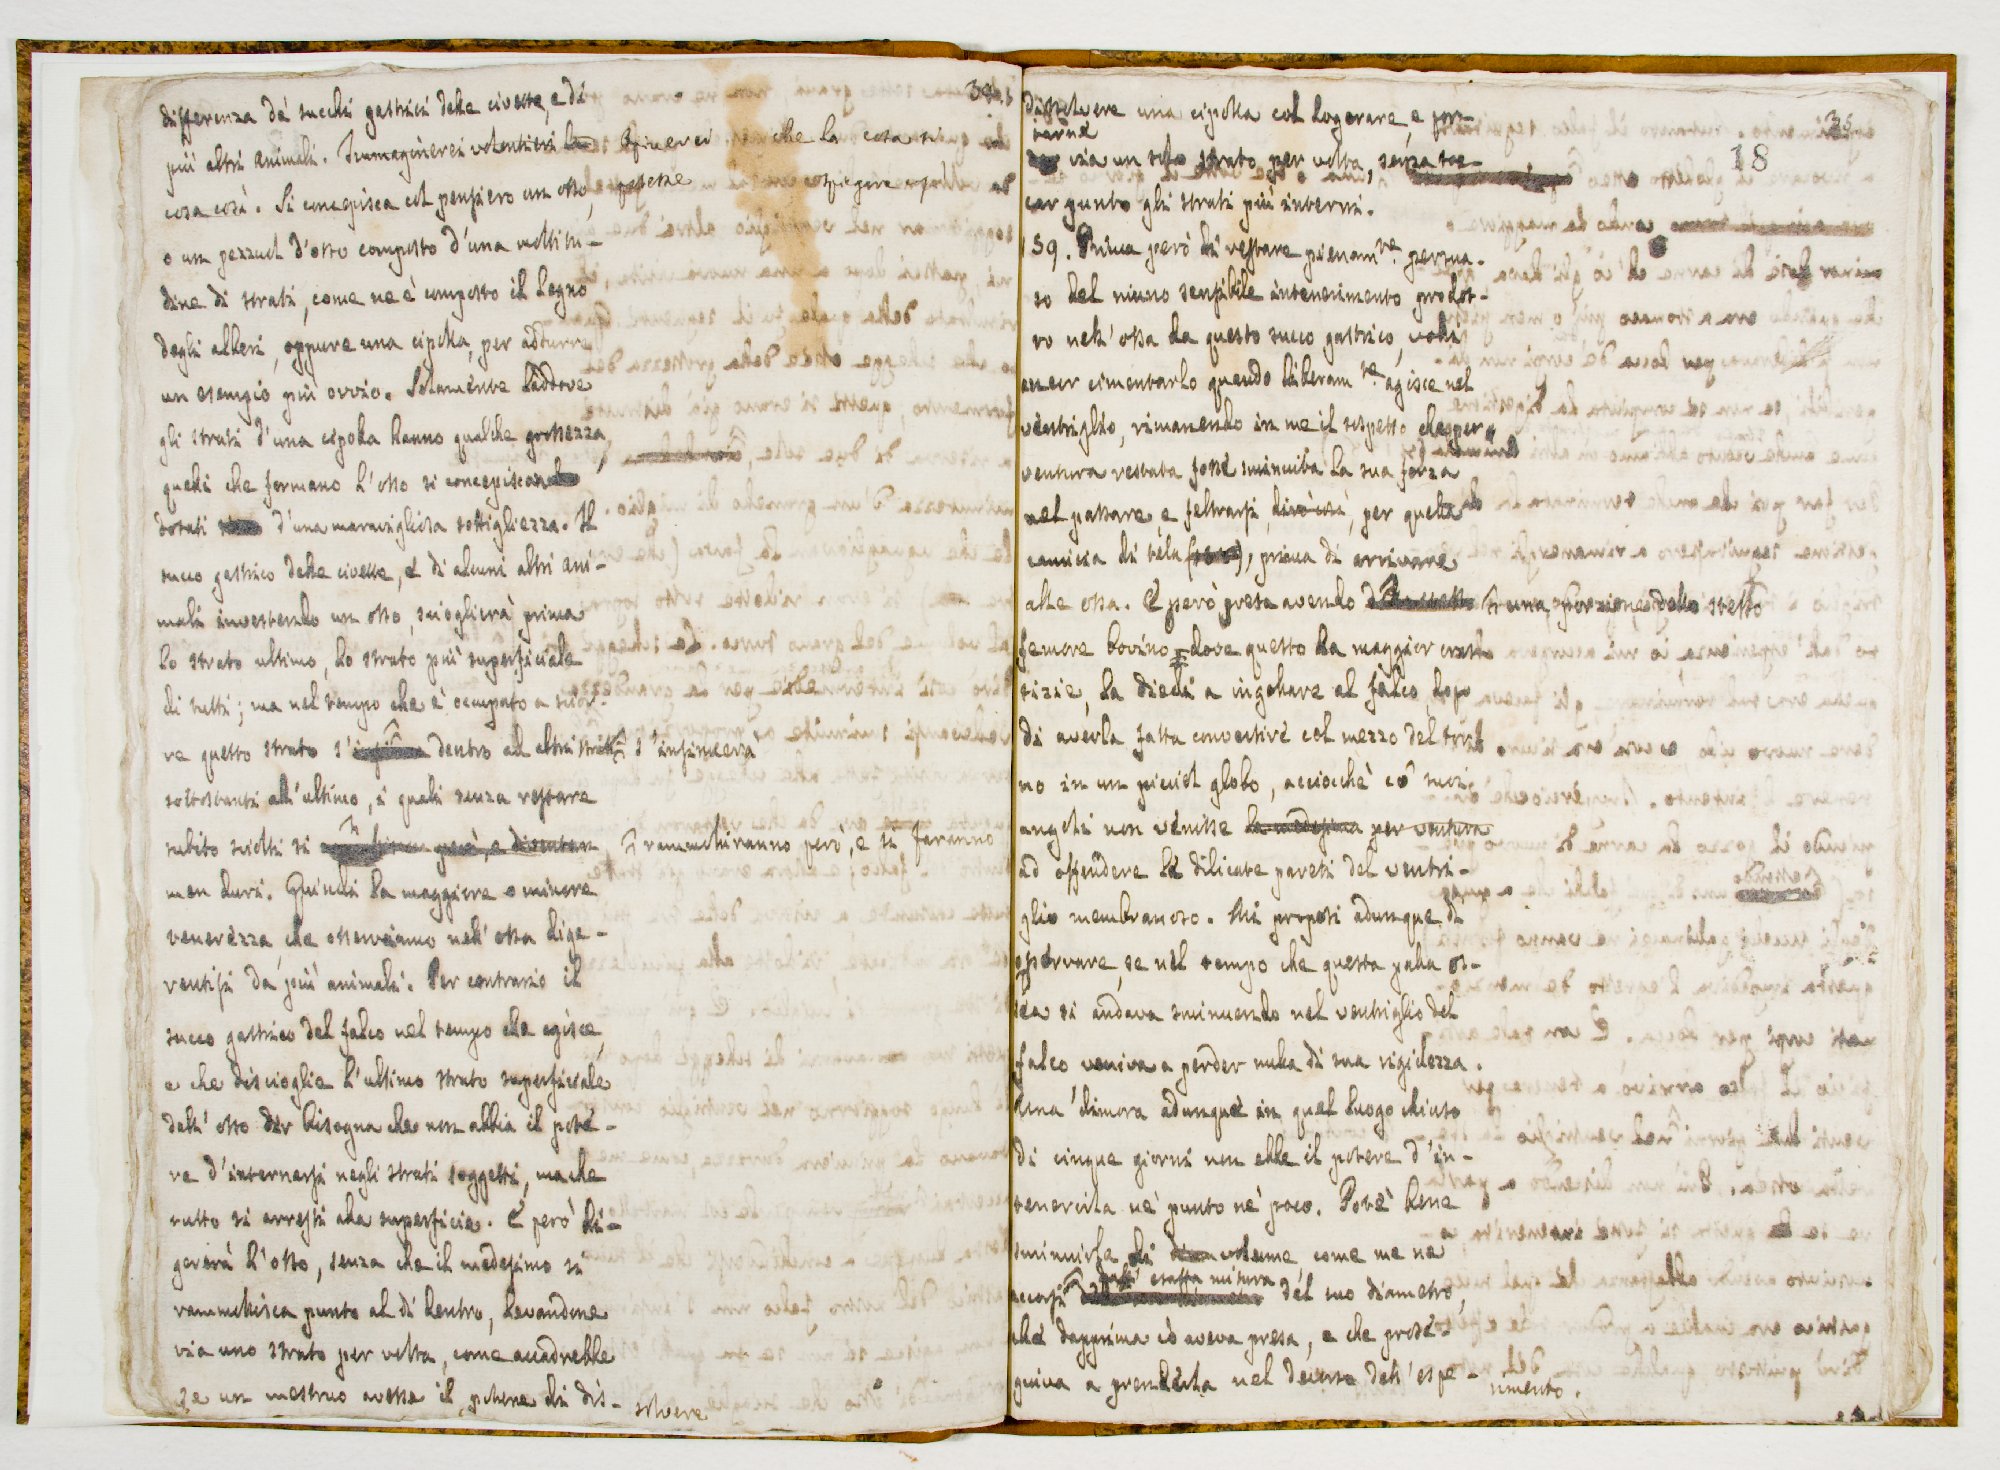 34.
differenza dà succhi gastrici delle civette, e di
più altri animali. Immaginerei volentieri che la cosa si
potesse spiegare così
cosa così. Si concepisca col pensiero un osso,
o un pezzuol d'osso composto d'una moltitu-
dine di strati, come ne è composto il legno
degli alberi, oppure una cipolla, per addurre
un esempio più ovvio. Solamente laddove
gli strati d'una cipolla hanno qualche grossezza,
quelli che formano l'osso si concepiscan
dotati d'una maravigliosa sottigliezza. Il
succo gastrico delle civette, e di alcuni altri ani-
mali investendo un osso, scioglierà prima
lo strato ultimo, lo strato più superficiale
di tutti; ma nel tempo che è occupato a sciol-
re questo strato s'insinuerà dentro ad altri strati
sottostanti all'ultimo, i quali senza restare
subito sciolti si rammolliranno però, e si faranno
men duri. Quindi la maggiore o minore
tenerezza, che osserviamo nell'ossa dige-
rentisi dà più animali. Per contrario il
succo gastrico del falco nel tempo che agisce,
e che discioglie l'ultimo strato superficiale
dell'osso dir bisogna che non abbia il pote-
re d'internarsi negli strati soggetti, ma che
tutto si arresti alla superficie. E però di-
gererà l'osso, senza che il medesimo si
rammollisca punto al di dentro, levandone
via uno strato per volta, come accadrebbe
se un mestruo avesse il potere di dis-
solvere
35
18
dissolvere una cipolla col logorare, e por-
tarne
via un solo strato per volta, senza toc-
car punto gli strati più interni.
159. Prima però di restare pienamte persua-
so del niuno sensibile intenerimento prodot-
to nell'ossa da questo succo gastrico, volli
ancor cimentarlo quando liberamte agisce nel
ventriglio, rimanendo in me il sospetto che per av-
ventura restata fosse sminuita la sua forza
nel passare, e feltrarsi, dirò così, per quella
camicia di tela, prima di arrivare
alle ossa. E però presa avendo una porzione dello stesso
femore bovino dove questo ha maggior cras-
sizie, la diedi a ingoiare al falco, dopo
di averla fatta convertire col mezzo del tor-
no in un picciol globo, acciocchè co' suoi
angoli non venisse la medesima per ventura
ad offendere le dilicate pareti del ventri-
glio membranoso. Mi proposi adunque di
osservare, se nel tempo che questa palla os-
sea si andava sminuendo nel ventriglio del
falco veniva a perder nulla di sua rigidezza.
Una dimora adunque in quel luogo chiuso
di cinque giorni non ebbe il potere d'in-
tenerirla nè punto nè poco. Potè bene
sminuirla di volume come me ne
accorsi dall'esatta misura del suo diametro,
che dapprima io aveva presa, e che prose-
guiva a prenderla nel decorso dell'espe-
rimento.